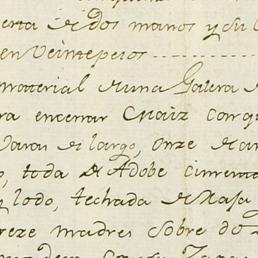 erta de dos manos y su
en Veinte pesos
material de una Galera
ra encerrar Maiz con
Varas de largo, onze de an
toda de Adobe
y lodo, techada de
treze madres sobre do